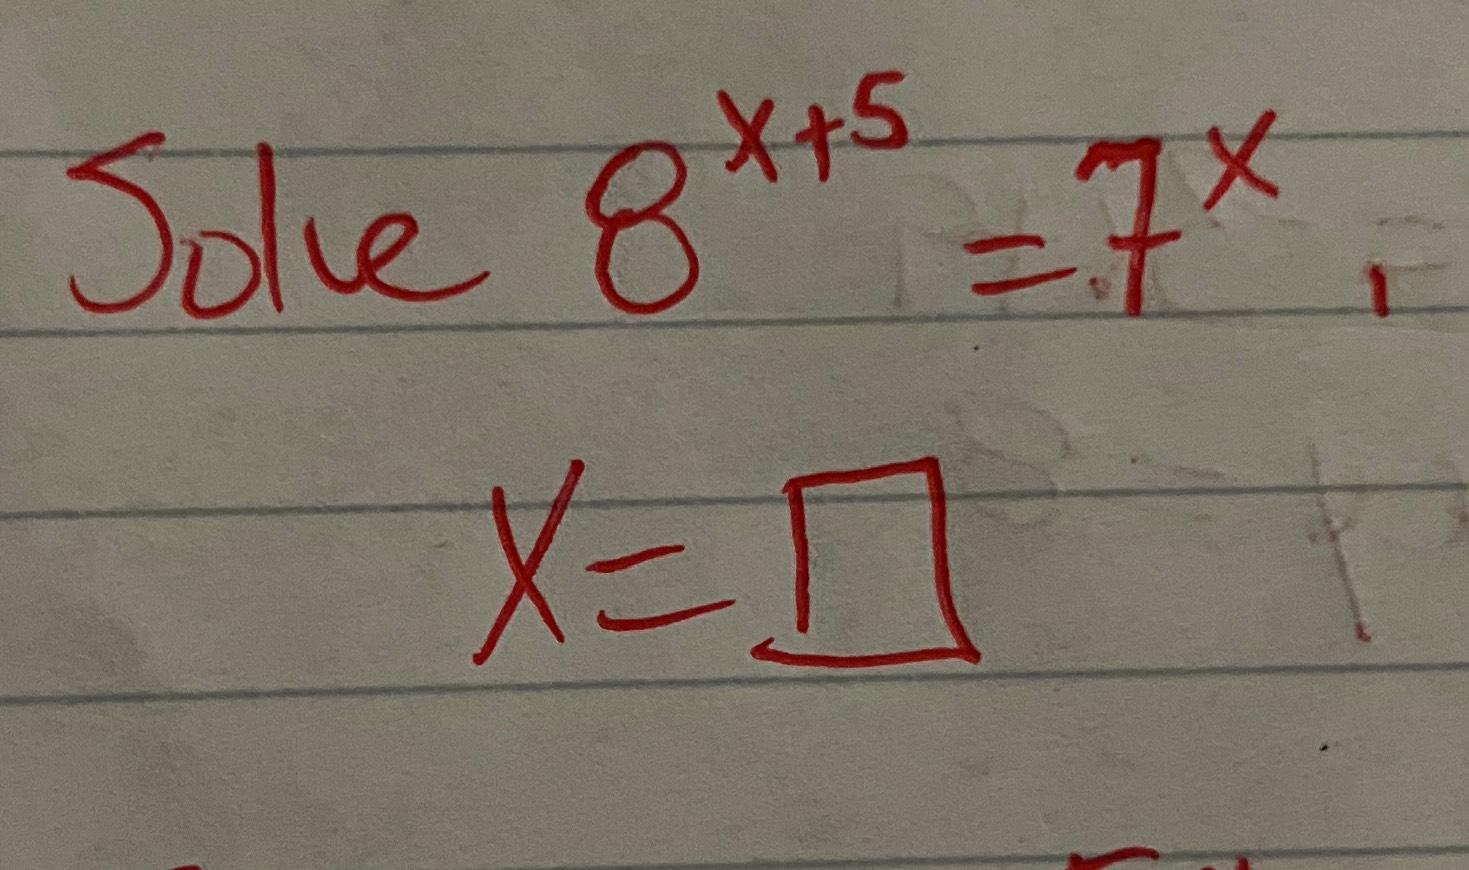 Solve 8^{x+5} = 7^x,
x = □